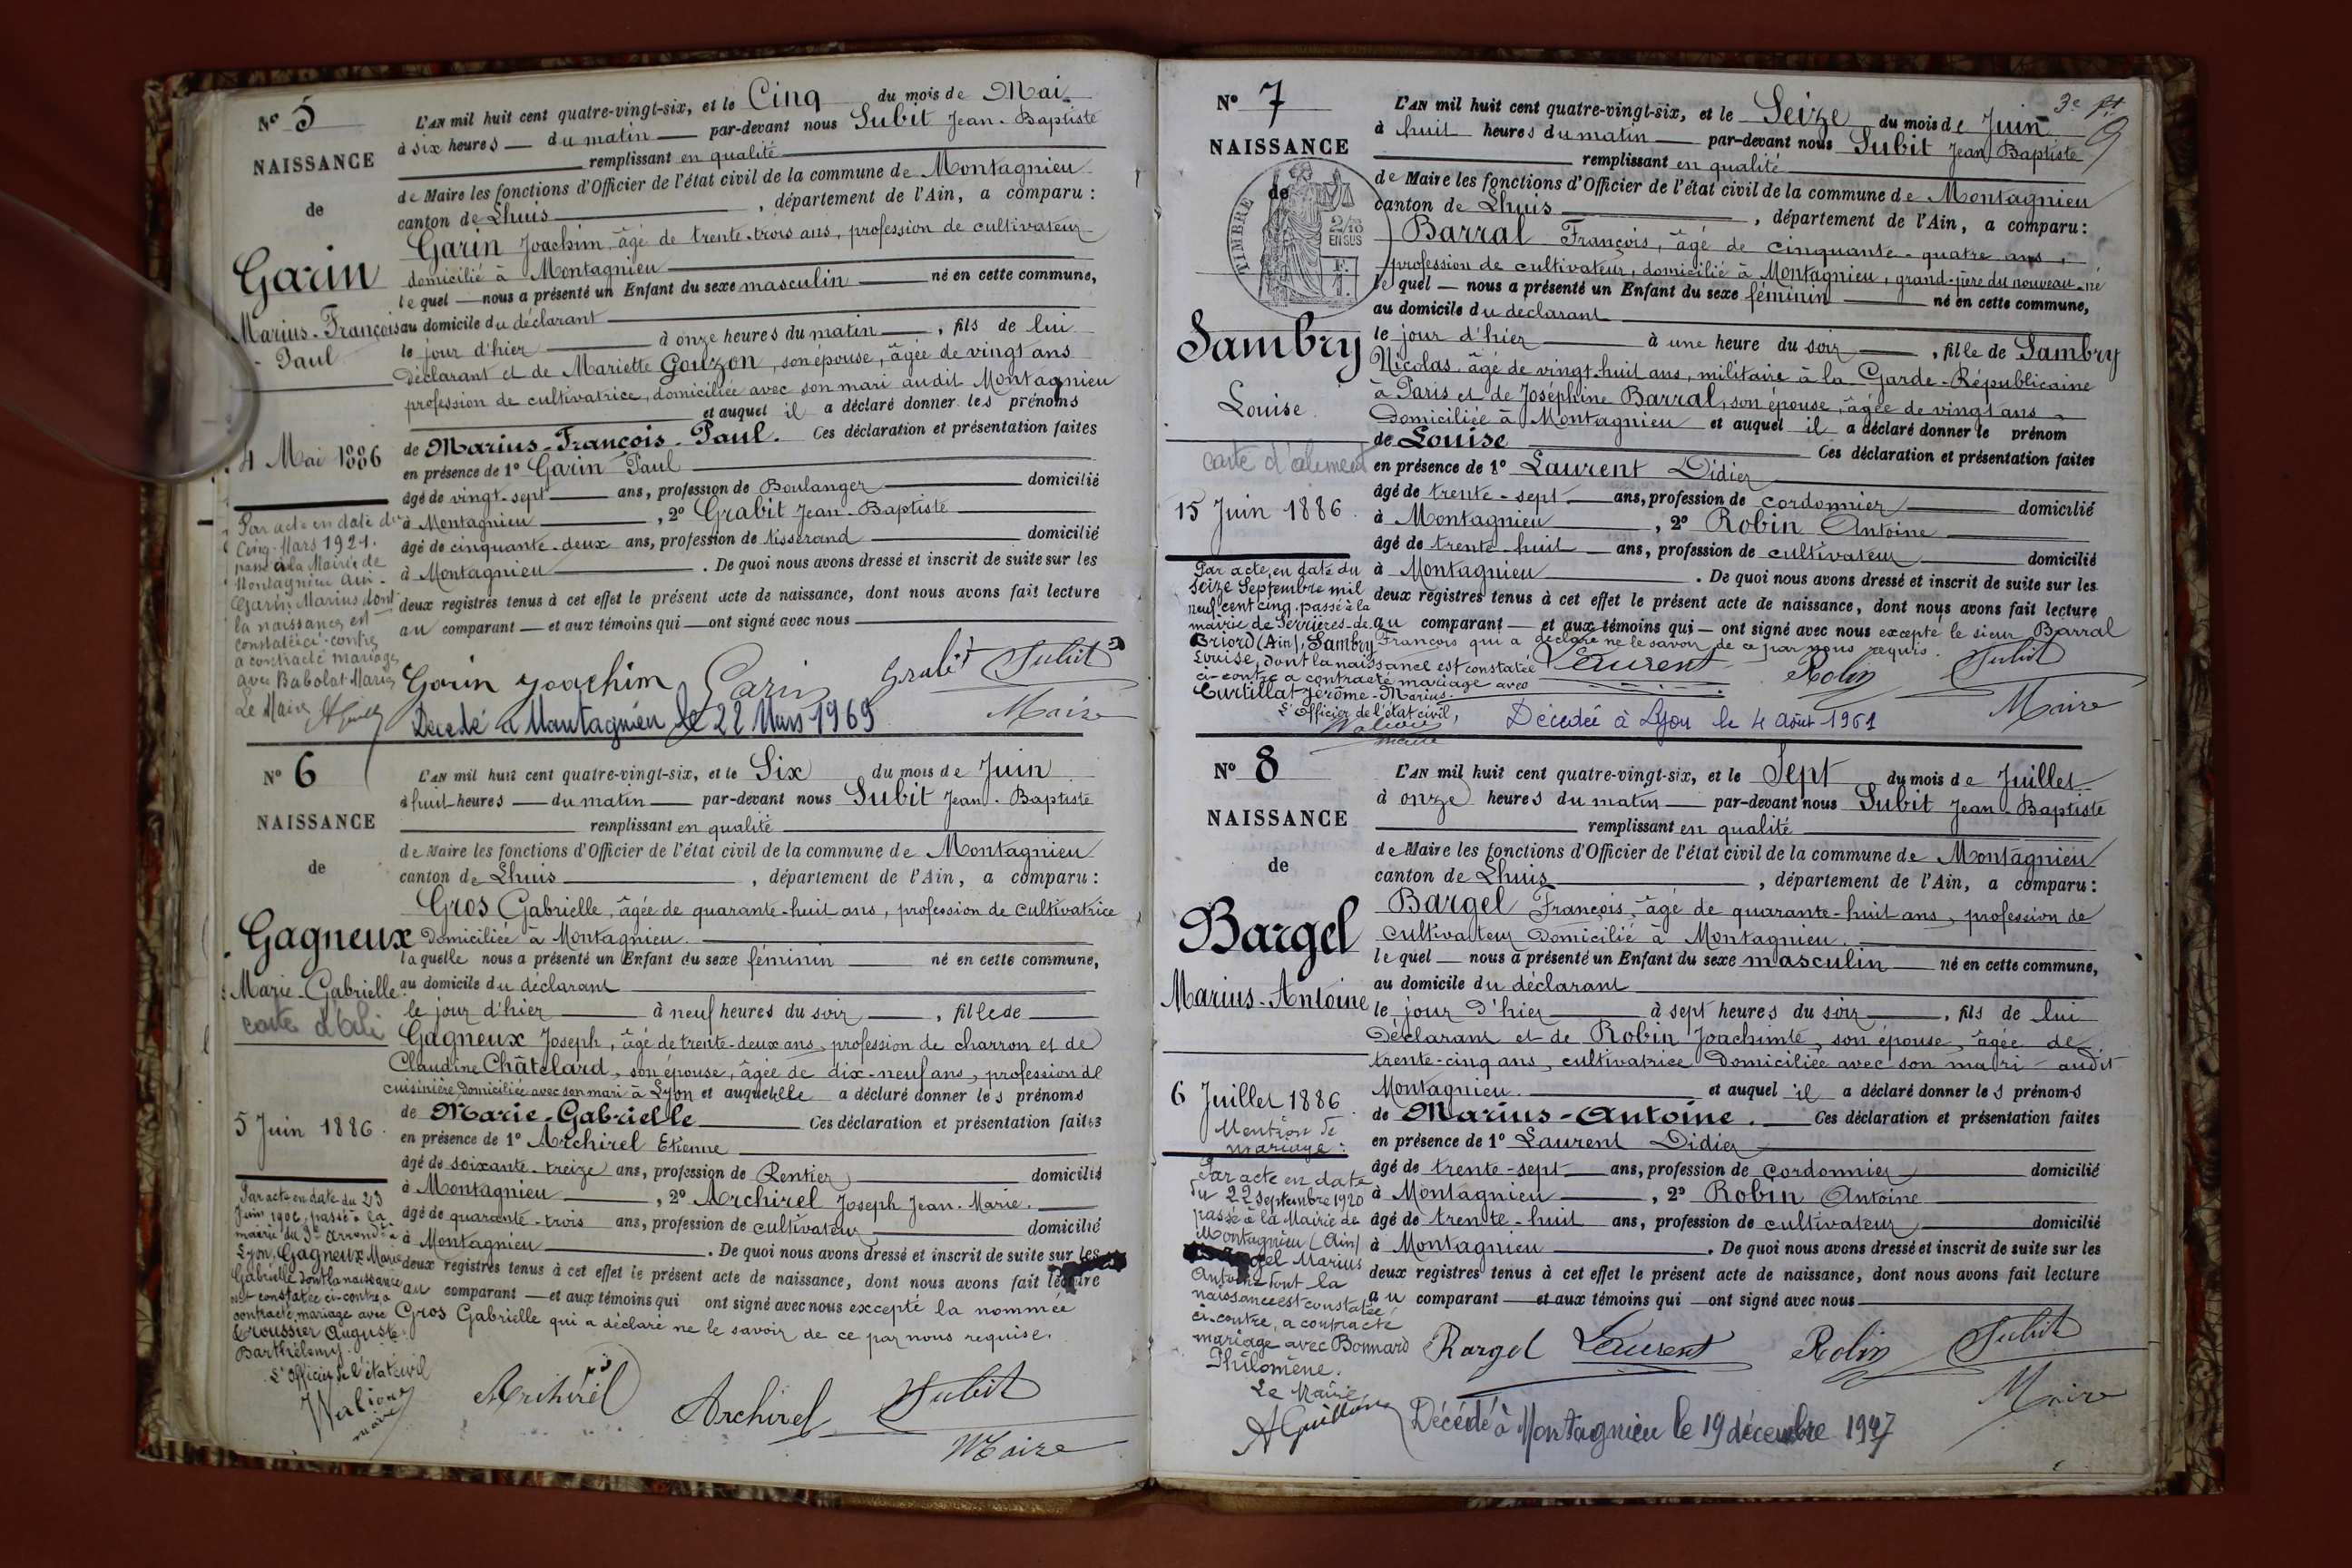 N° 5
NAISSANCE
de
Garin
Marius-François
-Paul
4 Mai 1886
Par acte en date du
Cinq Mars 1921.
passé à la Mairie de
Montagnieu Ain.
Garin Marius dont
la naissance est
constatée ci-contre
a contracté mariage
avec Babolat Maria
Le Maire
L'AN mil huit cent quatre-vingt-six, et le Cinq du mois de Mai
à six heures du matin par-devant nous Subit Jean-Baptiste
remplissant en qualité
de Maire les fonctions d'Officier de l'état civil de la commune de Montagnieu
canton de Lhuis, département de l'Ain, a comparu :
Garin Joachim, âgé de trente-trois ans, profession de cultivateur
domicilié à Montagnieu
lequel nous a présenté un Enfant du sexe masculin né en cette commune,
au domicile du déclarant
le jour d'hier à onze heures du matin, fils de lui
déclarant et de Mariette Gouzon, son épouse, âgée de vingt ans
profession de cultivatrice, domiciliée avec son mari audit Montagnieu
et auquel il a déclaré donner les prénoms
de Marius-François-Paul. Ces déclaration et présentation faites
en présence de 1° Garin Paul
âgé de vingt-sept ans, profession de Boulanger domicilié
à Montagnieu, 2° Grabit Jean-Baptiste
âgé de cinquante-deux ans, profession de tisserand domicilié
à Montagnieu. De quoi nous avons dressé et inscrit de suite sur les
deux registres tenus à cet effet le présent acte de naissance, dont nous avons fait lecture
au comparant et aux témoins qui ont signé avec nous
Garin Joachim Garin Grabit Subit
Maire
Décédé à Montagnieu le 22 Mars 1969
N° 6
NAISSANCE
de
Gagneux
Marie-Gabrielle
carte d'ali
5 Juin 1886.
Par acte en date du 23
Juin 1906, passé à la
mairie du 3e arrondt à
Lyon, Gagneux Marie
Gabrielle dont la naissance
est constatée ci-contre, a
contracté mariage avec
Troussier Auguste
Barthélemy.
L'Officier de l'état civil
Walione
maire
L'AN mil huit cent quatre-vingt-six, et le Six du mois de Juin
à huit heures du matin par-devant nous Subit Jean-Baptiste
remplissant en qualité
de Maire les fonctions d'Officier de l'état civil de la commune de Montagnieu
canton de Lhuis, département de l'Ain, a comparu :
Gros Gabrielle, âgée de quarante-huit ans, profession de cultivatrice
domiciliée à Montagnieu.
laquelle nous a présenté un Enfant du sexe féminin né en cette commune,
au domicile du déclarant
le jour d'hier à neuf heures du soir, fille de
Gagneux Joseph, âgé de trente-deux ans, profession de charron et de
Claudine Châtelard, son épouse, âgée de dix-neuf ans, profession de
cuisinière domiciliée avec son mari à Lyon et auquel elle a déclaré donner les prénoms
de Marie-Gabrielle Ces déclaration et présentation faites
en présence de 1° Archirel Etienne
âgé de soixante-treize ans, profession de Rentier domicilié
à Montagnieu, 2° Archirel Joseph Jean-Marie.
âgé de quarante-trois ans, profession de cultivateur domicilié
à Montagnieu. De quoi nous avons dressé et inscrit de suite sur les
deux registres tenus à cet effet le présent acte de naissance, dont nous avons fait lecture
au comparant et aux témoins qui ont signé avec nous excepté la nommée
Gros Gabrielle qui a déclaré ne le savoir de ce par nous requise.
Archirel Archirel Subit
Maire
3e
9
N° 7
NAISSANCE
de
TIMBRE
2/10
EN SUS
Sambry
Louise
carte d'aliment
15 Juin 1886.
Par acte en date du
seize Septembre mil
neuf cent cinq, passé à la
mairie de Serrières-de-
Briord (Ain), Sambry
Louise, dont la naissance est constatée
ci-contre a contracté mariage avec
Curtillat Jérôme-Marius.
L'Officier de l'état civil,
Walione
maire
L'AN mil huit cent quatre-vingt-six, et le Seize du mois de Juin
à huit heures du matin par-devant nous Subit Jean Baptiste
remplissant en qualité
de Maire les fonctions d'Officier de l'état civil de la commune de Montagnieu
canton de Lhuis, département de l'Ain, a comparu :
Barral François, âgé de cinquante-quatre ans,
profession de cultivateur, domicilié à Montagnieu, grand-père du nouveau-né
lequel nous a présenté un Enfant du sexe féminin né en cette commune,
au domicile du déclarant
le jour d'hier à une heure du soir, fille de Sambry
Nicolas âgé de vingt-huit ans, militaire à la Garde-Républicaine
à Paris et de Joséphine Barral, son épouse, âgée de vingt ans
domiciliée à Montagnieu et auquel il a déclaré donner le prénom
de Louise Ces déclaration et présentation faites
en présence de 1° Laurent Didier
âgé de trente-sept ans, profession de cordonnier domicilié
à Montagnieu, 2° Robin Antoine
âgé de trente-huit ans, profession de cultivateur domicilié
à Montagnieu. De quoi nous avons dressé et inscrit de suite sur les
deux registres tenus à cet effet le présent acte de naissance, dont nous avons fait lecture
au comparant et aux témoins qui ont signé avec nous excepté le sieur Barral
François qui a déclaré ne le savoir de ce par nous requis.
Laurent Robin Subit
Maire
Décédée à Lyon le 4 août 1961
N° 8
NAISSANCE
de
Bargel
Marius-Antoine
6 Juillet 1886.
Mention de
mariage :
Par acte en date
du 22 Septembre 1920
passé à la Mairie de
Montagnieu (Ain)
gel Marius
Antoine dont la
naissance est constatée
ci-contre, a contracté
mariage avec Bonnard
Philomène.
Le Maire
A Guillon
L'AN mil huit cent quatre-vingt-six, et le Sept du mois de Juillet
à onze heures du matin par-devant nous Subit Jean-Baptiste
remplissant en qualité
de Maire les fonctions d'Officier de l'état civil de la commune de Montagnieu
canton de Lhuis, département de l'Ain, a comparu :
Bargel François, âgé de quarante-huit ans, profession de
cultivateur domicilié à Montagnieu.
lequel nous a présenté un Enfant du sexe masculin né en cette commune,
au domicile du déclarant
le jour d'hier à sept heures du soir, fils de lui
déclarant et de Robin Joachimte, son épouse, âgée de
trente-cinq ans, cultivatrice domiciliée avec son mari audit
Montagnieu et auquel il a déclaré donner les prénoms
de Marius-Antoine. Ces déclaration et présentation faites
en présence de 1° Laurent Didier
âgé de trente-sept ans, profession de cordonnier domicilié
à Montagnieu, 2° Robin Antoine
âgé de trente-huit ans, profession de cultivateur domicilié
à Montagnieu. De quoi nous avons dressé et inscrit de suite sur les
deux registres tenus à cet effet le présent acte de naissance, dont nous avons fait lecture
au comparant et aux témoins qui ont signé avec nous
Bargel Laurent Robin Subit
Maire
Décédé à Montagnieu le 19 décembre 1947